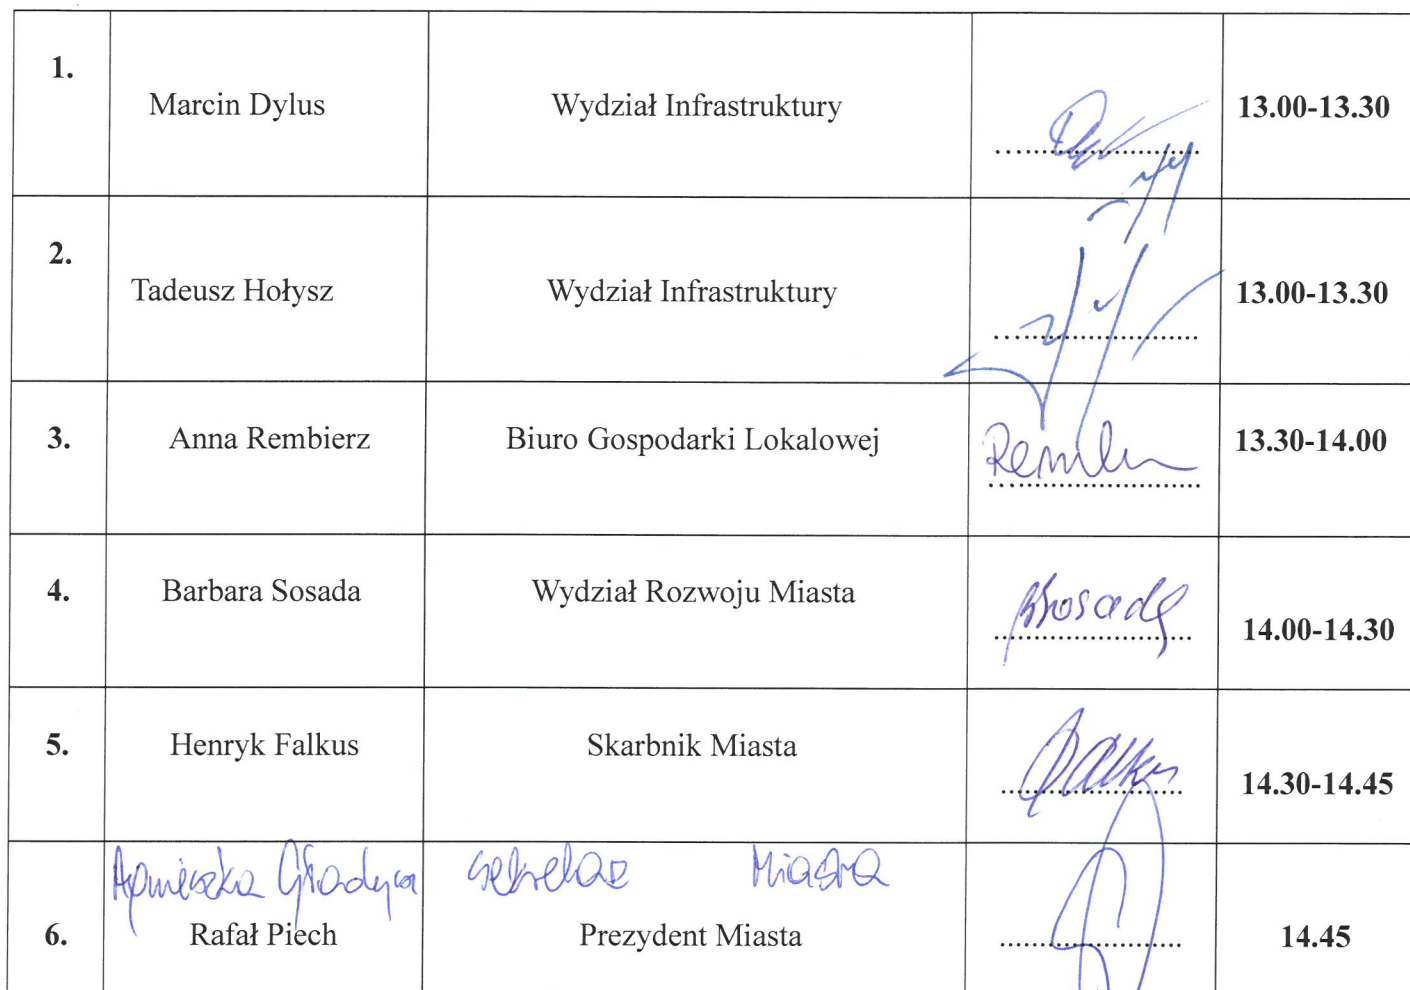 1. Marcin Dylus Wydział Infrastruktury 13.00-13.30
2. Tadeusz Hołysz Wydział Infrastruktury 13.00-13.30
3. Anna Rembierz Biuro Gospodarki Lokalowej 13.30-14.00
4. Barbara Sosada Wydział Rozwoju Miasta 14.00-14.30
5. Henryk Falkus Skarbnik Miasta 14.30-14.45
Agnieszka Sekretarz Miasta
6. Rafał Piech Prezydent Miasta 14.45